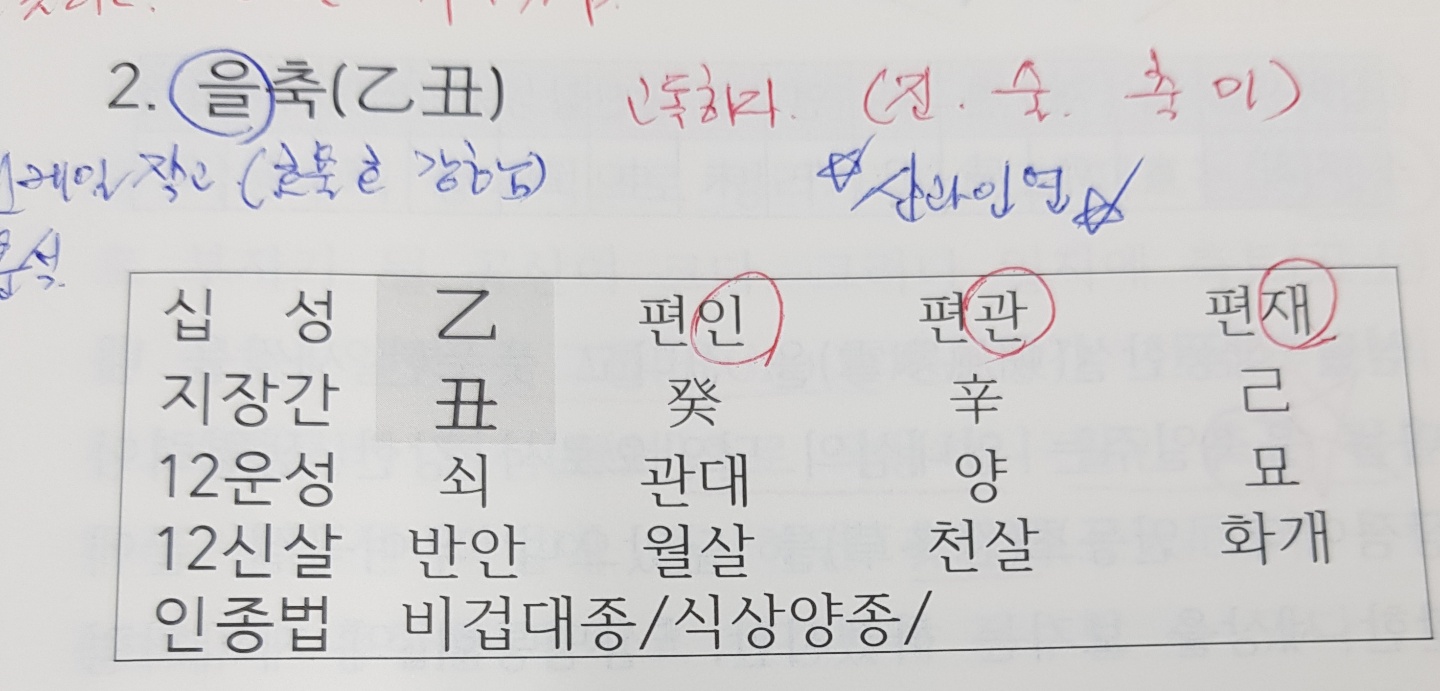 2. 을축(乙丑) 고독하다. (진. 술. 축 이)
작고 (
☆삼라인연☆
십 성 乙 편인 편관 편재
지장간 丑 癸 辛 己
12운성 쇠 관대 양 묘
12신살 반안 월살 천살 화개
인종법 비겁대종/식상양종/